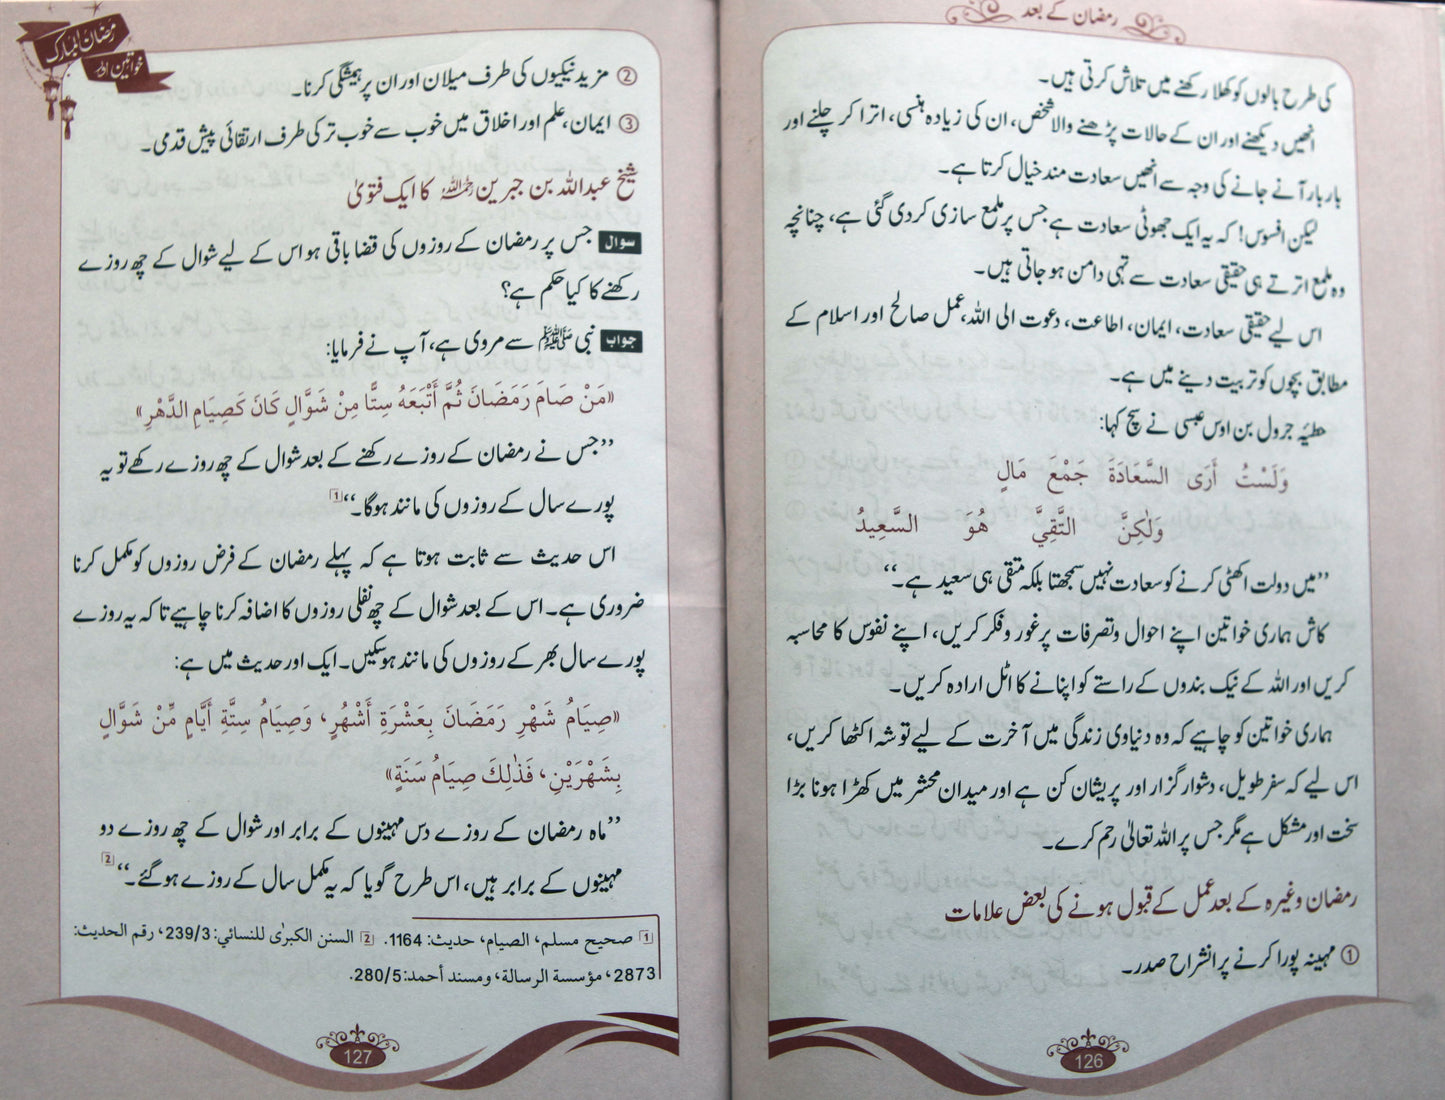 رمضان کے بعد
کی طرح بالوں کو کھلا رکھنے میں تلاش کرتی ہیں۔
انھیں دیکھنے اور ان کے حالات پڑھنے والا شخص، ان کی زیادہ ہنسی، اترا کر چلنے اور
بار بار آنے جانے کی وجہ سے انھیں سعادت مند خیال کرتا ہے۔
لیکن افسوس! کہ یہ ایک جھوٹی سعادت ہے جس پر ملمع سازی کر دی گئی ہے، چنانچہ
وہ ملمع اترتے ہی حقیقی سعادت سے تہی دامن ہو جاتی ہیں۔
اس لیے حقیقی سعادت، ایمان، اطاعت، دعوت الی اللہ، عمل صالح اور اسلام کے
مطابق بچوں کو تربیت دینے میں ہے۔
حطیہ جرول بن اوس عبسی نے سچ کہا:
وَلَسْتُ أَرَى السَّعَادَةَ جَمْعَ مَالٍ
وَلٰكِنَّ التَّقِيَّ هُوَ السَّعِيدُ
’’میں دولت اکٹھی کرنے کو سعادت نہیں سمجھتا بلکہ متقی ہی سعید ہے۔‘‘
کاش ہماری خواتین اپنے احوال وتصرفات پر غور وفکر کریں، اپنے نفوس کا محاسبہ
کریں اور اللہ کے نیک بندوں کے راستے کو اپنانے کا اٹل ارادہ کریں۔
ہماری خواتین کو چاہیے کہ وہ دنیاوی زندگی میں آخرت کے لیے توشہ اکٹھا کریں،
اس لیے کہ سفر طویل، دشوار گزار اور پریشان کن ہے اور میدان محشر میں کھڑا ہونا بڑا
سخت اور مشکل ہے مگر جس پر اللہ تعالیٰ رحم کرے۔
رمضان وغیرہ کے بعد عمل کے قبول ہونے کی بعض علامات
① مہینہ پورا کرنے پر انشراح صدر۔
126
رمضان المبارک
خواتین اور
② مزید نیکیوں کی طرف میلان اور ان پر ہمیشگی کرنا۔
③ ایمان، علم اور اخلاق میں خوب سے خوب تر کی طرف ارتقائی پیش قدمی۔
شیخ عبداللہ بن جبرین رحمہ اللہ کا ایک فتویٰ
سوال جس پر رمضان کے روزوں کی قضا باقی ہو اس کے لیے شوال کے چھ روزے
رکھنے کا کیا حکم ہے؟
جواب نبی ﷺ سے مروی ہے، آپ نے فرمایا:
«مَنْ صَامَ رَمَضَانَ ثُمَّ أَتْبَعَهُ سِتًّا مِنْ شَوَّالٍ كَانَ كَصِيَامِ الدَّهْرِ»
’’جس نے رمضان کے روزے رکھنے کے بعد شوال کے چھ روزے رکھے تو یہ
پورے سال کے روزوں کی مانند ہوگا۔‘‘ 1
اس حدیث سے ثابت ہوتا ہے کہ پہلے رمضان کے فرض روزوں کو مکمل کرنا
ضروری ہے۔ اس کے بعد شوال کے چھ نفلی روزوں کا اضافہ کرنا چاہیے تاکہ یہ روزے
پورے سال بھر کے روزوں کی مانند ہوسکیں۔ ایک اور حدیث میں ہے:
«صِيَامُ شَهْرِ رَمَضَانَ بِعَشْرَةِ أَشْهُرٍ، وَصِيَامُ سِتَّةِ أَيَّامٍ مِّنْ شَوَّالٍ
بِشَهْرَيْنِ، فَذٰلِكَ صِيَامُ سَنَةٍ»
’’ماہ رمضان کے روزے دس مہینوں کے برابر اور شوال کے چھ روزے دو
مہینوں کے برابر ہیں، اس طرح گویا کہ یہ مکمل سال کے روزے ہو گئے۔‘‘ 2
1 صحيح مسلم، الصيام، حديث: 1164. 2 السنن الكبرٰى للنسائي: 239/3، رقم الحديث:
2873، مؤسسة الرسالة، ومسند أحمد: 280/5.
127